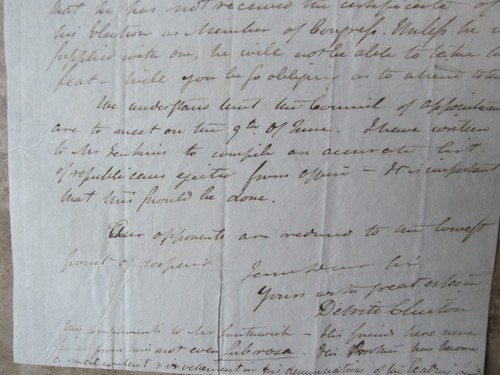 that he has not received the certificate of
his Election as Member of Congress. Unless he is
supplied with one, he will not be able to take his
seat - Will you be so obliging as to attend to
We understand that the Council of appointment
are to meet on the 9th of June. I have written
to Mr Jenkins to compile an accurate list
of republicans ejected from office - It is important
that this should be done.
Our opponents are reduced to the lowest
point of despair
I am Dear Sir
Yours with great esteem
DeWitt Clinton
My compliments to Mr - His friends here never
from him not even sub rosa. His Brother has become
a malcontent & is vehement in his denunciations of the leading